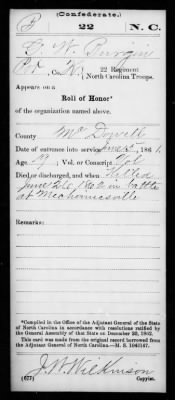 (Confederate.)
B 22 N.C.
G. W. Burgin
Pvt, Co. K, 22 Regiment
North Carolina Troops.
Appears on a
Roll of Honor*
of the organization named above.
County Mc Dowell
Date of entrance into service June 5, 186 1.
Age 19 Vol. or Conscript Vol
Died or discharged, and when Killed
June 26 1862 in battle
at Mechanicsville
Remarks:
*Compiled in the Office of the Adjutant General of the State
of North Carolina in accordance with resolutions ratified by
the General Assembly of that State on December 20, 1862.
This card was made from the original record borrowed from
the Adjutant General of North Carolina—M. S.
J. W. Wilkinson
(677) Copyist.